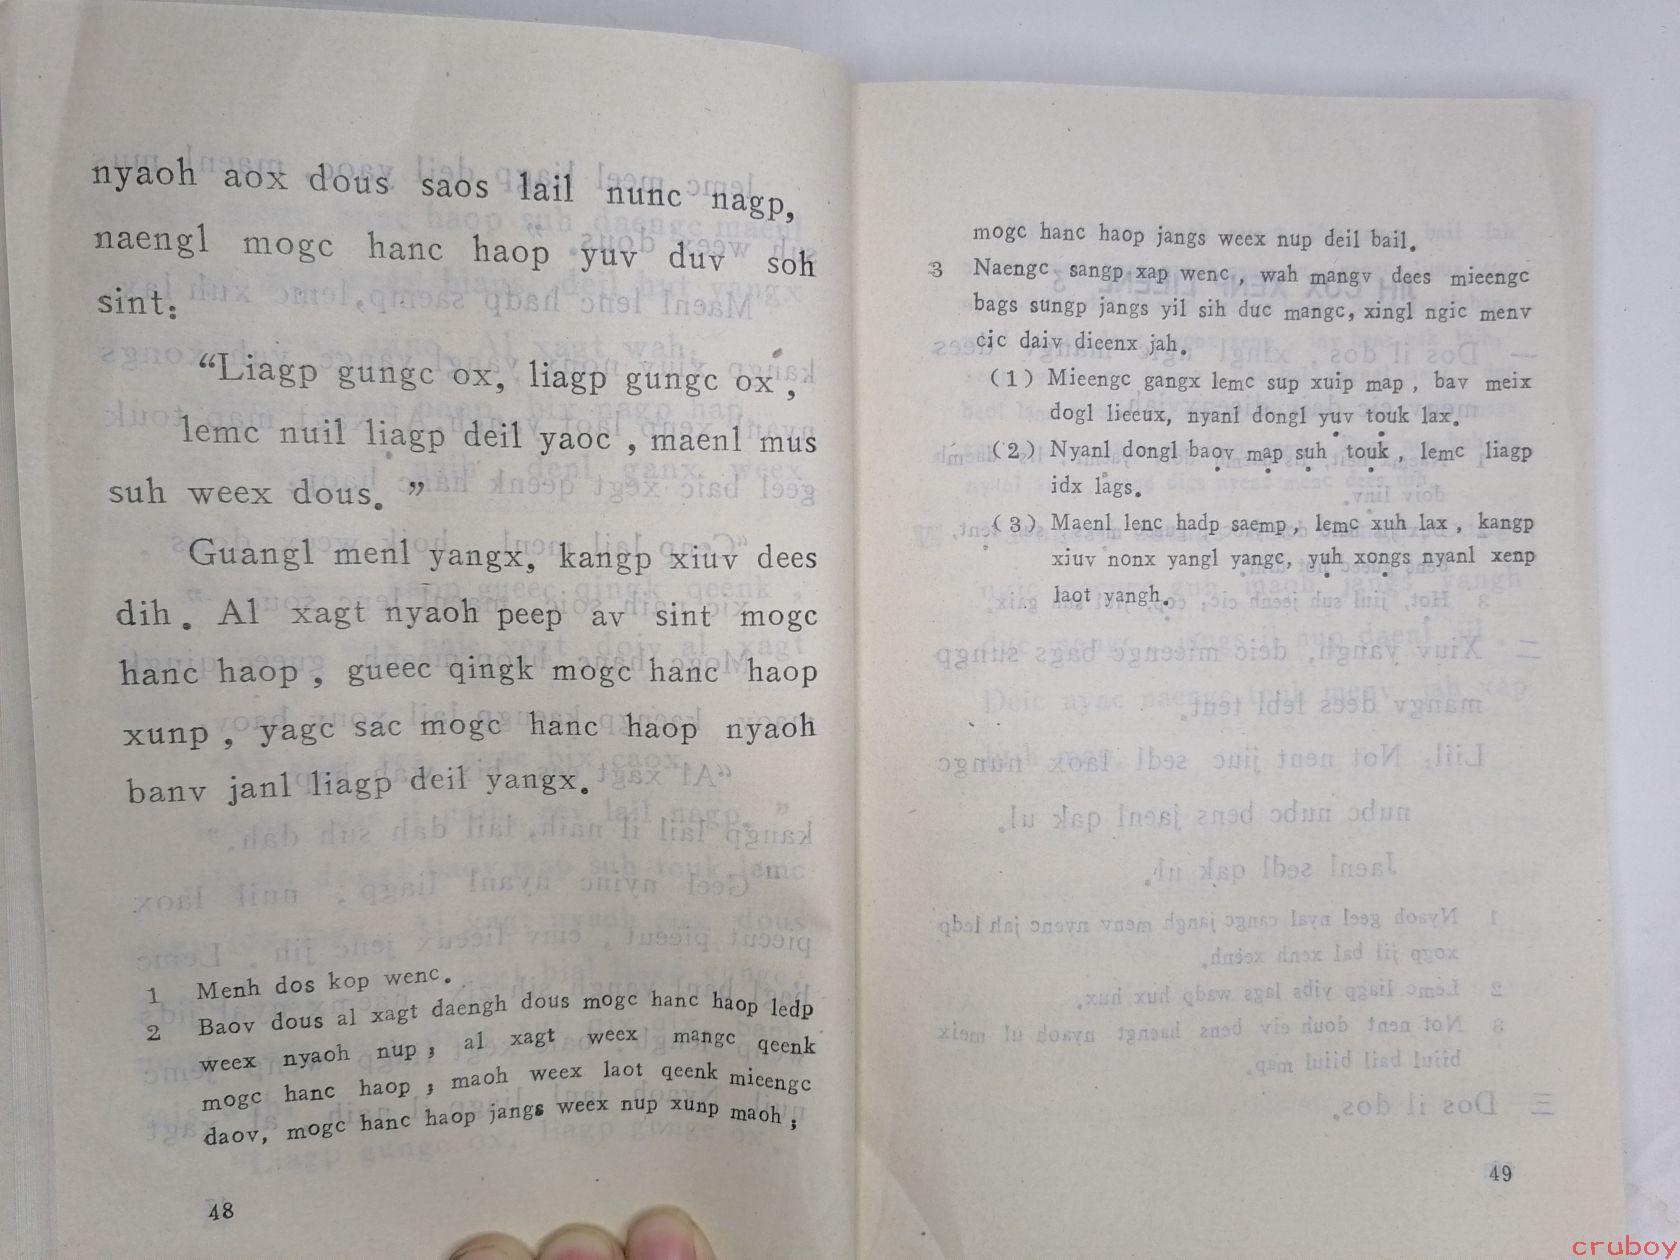 nyaoh aox dous saos lail nunc nagp,
naengl mogc hanc haop yuv duv soh
sint:
“Liagp gungc ox, liagp gungc ox,
lemc nuil liagp deil yaoc, maenl mus
suh weex dous.”
Guangl menl yangx, kangp xiuv dees
dih. Al xagt nyaoh peep av sint mogc
hanc haop, gueec qingk mogc hanc haop
xunp, yagc sac mogc hanc haop nyaoh
banv janl liagp deil yangx.
1 Menh dos kop wenc.
2 Baov dous al xagt daengh dous mogc hanc haop ledp
weex nyaoh nup; al xagt weex mangc qeenk
mogc hanc haop; maoh weex laot qeenk mieengc
daov, mogc hanc haop jangs weex nup xunp maoh;
48
mogc hanc haop jangs weex nup deil bail.
3 Naengc sangp xap wenc, wah mangv dees mieengc
bags sungp jangs yil sih duc mangc, xingl ngic menv
cic daiv dieenx jah.
(1) Mieengc gangx lemc sup xuip map, bav meix
dogl lieeux, nyanl dongl yuv touk lax.
(2) Nyanl dongl baov map suh touk, lemc liagp
idx lags.
(3) Maenl lenc hadp saemp, lemc xuh lax, kangp
xiuv nonx yangl yangc, yuh xongs nyanl xenp
laot yangh.
49
cruboy